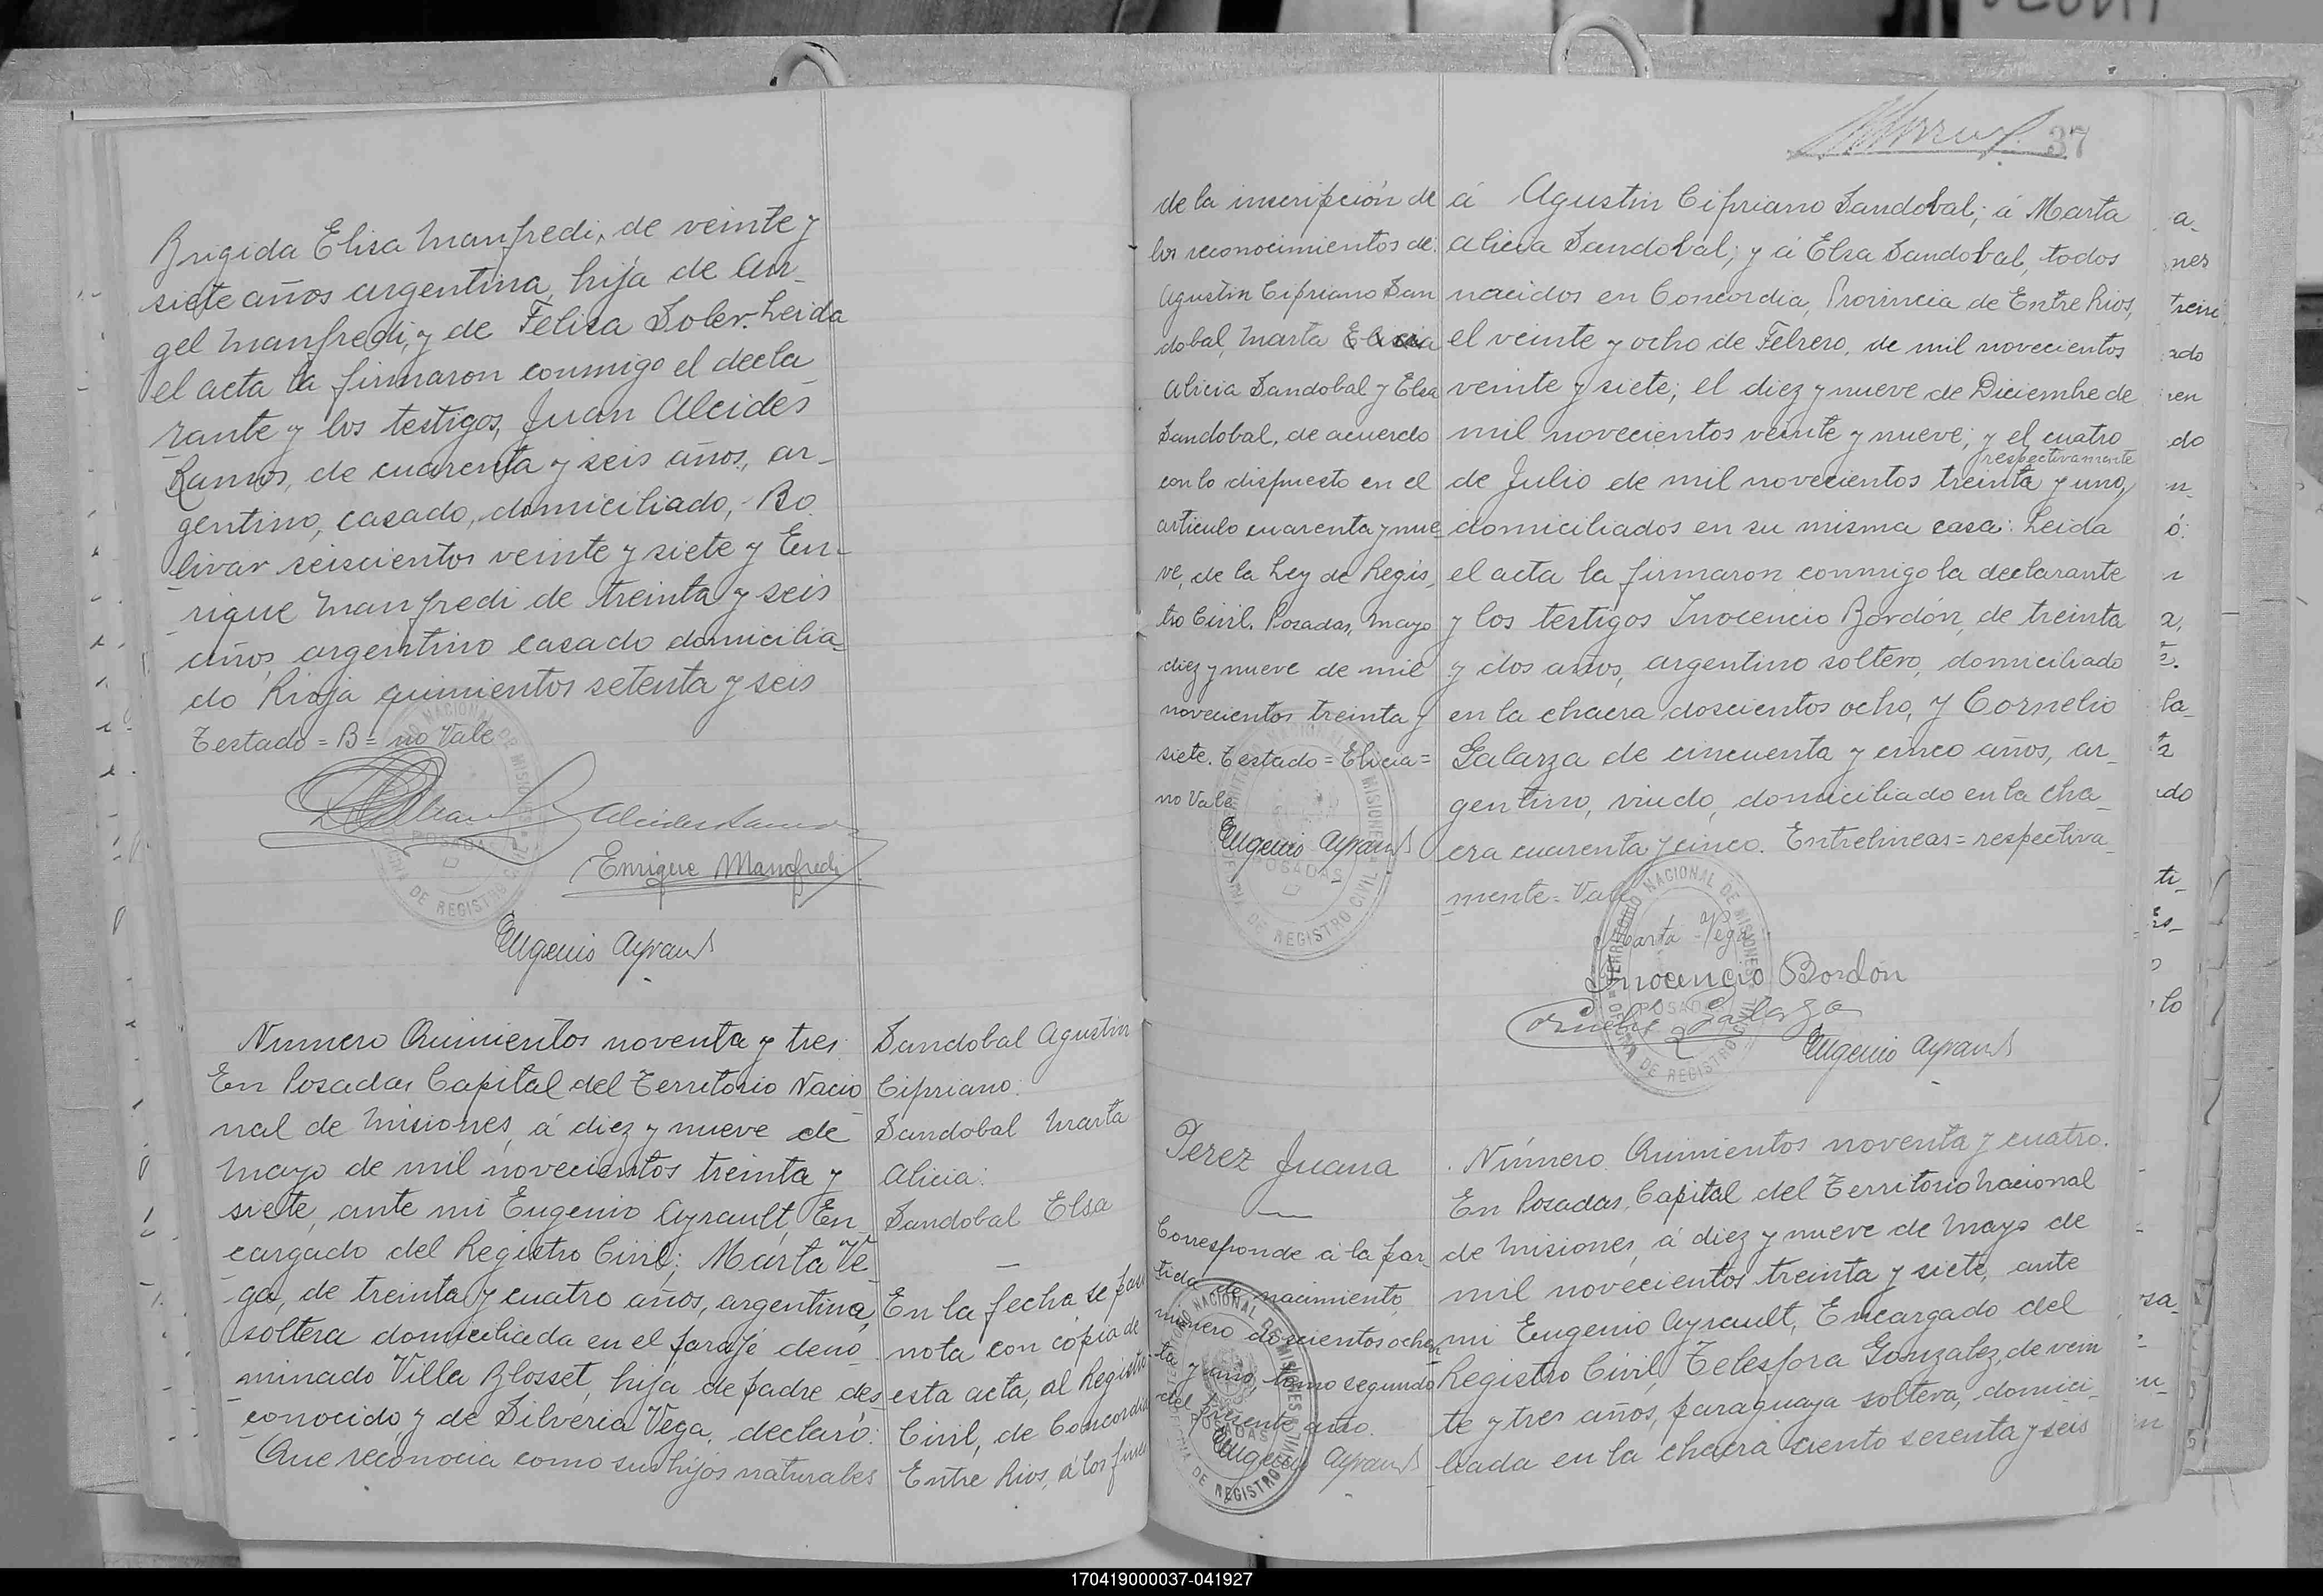 Brigida Elisa Manfredi, de veinte y
siete años argentina, hija de An-
gel Manfredi, y de Felisa Soler. Leida
el acta la firmaron conmigo el decla
rante y los testigos, Juan Alcides
Ramos, de cuarenta y seis años, ar-
gentino, casado, domiciliado, Bo
livar seiscientos veinte y siete y En-
rique Manfredi de treinta y seis
años, argentino casado domicilia-
do Rioja quinientos setenta y seis
Testado = B = no Vale
Alcides Ramos
Enrique Manfredi
Eugenio Ayrault
Número Quinientos noventa y tres
En Posadas Capital del Territorio Nacio
nal de Misiones, á diez y nueve de
Mayo de mil novecientos treinta y
siete, ante mi Eugenio Ayrault, En
cargado del Registro Civil; Marta Ve-
ga, de treinta y cuatro años, argentina,
soltera domiciliada en el paraje deno
minado Villa Blosset, hija de padre des-
conocido, y de Silveria Vega, declaró:
Que reconocia como sus hijos naturales
Sandobal Agustin
Cipriano.
Sandobal Marta
Alicia.
Sandobal Elsa
En la fecha se pasa
nota con copia de
esta acta, al Registro
Civil, de Concordia
Entre Rios, á los fines
37
de la inscripción de
los reconocimientos de
Agustin Cipriano San
dobal, Marta Elicia
Alicia Sandobal y Elsa
Sandobal, de acuerdo
con lo dispuesto en el
articulo cuarenta y nue
ve, de la Ley de Regis
tro Civil. Posadas, Mayo
diez y nueve de mil
novecientos treinta y
siete. Testado = Elicia =
no Vale
Eugenio Ayrault
á Agustin Cipriano Sandobal; á Marta
Alicia Sandobal; y á Elsa Sandobal, todos
nacidos en Concordia, Provincia de Entre Rios,
el veinte y ocho de Febrero, de mil novecientos
veinte y siete; el diez y nueve de Diciembre de
mil novecientos veinte y nueve; y el cuatro
respectivamente
de Julio de mil novecientos treinta y uno,
domiciliados en su misma casa. Leida
el acta la firmaron conmigo la declarante
y los testigos Inocencio Bordón, de treinta
y dos años, argentino soltero, domiciliado
en la chacra doscientos ocho, y Cornelio
Galarza de cincuenta y cinco años, ar-
gentino, viudo, domiciliado en la cha-
cra cuarenta y cinco. Entrelineas = respectiva-
mente = Vale
Marta Vega
Inocencio Bordón
Cornelio Galarza
Eugenio Ayrault
TERRITORIO NACIONAL DE MISIONES
POSADAS
OFICINA DE REGISTRO CIVIL
Perez Juana
Corresponde á la par
tida de nacimiento
número doscientos ochen
ta y uno, tomo segundo
del presente año.
Eugenio Ayrault
Número Quinientos noventa y cuatro.
En Posadas, Capital del Territorio Nacional
de Misiones, á diez y nueve de Mayo de
mil novecientos treinta y siete, ante
mi Eugenio Ayrault, Encargado del
Registro Civil, Telesfora Gonzalez, de vein
te y tres años, paraguaya soltera, domici-
liada en la chacra ciento sesenta y seis
170419000037-041927